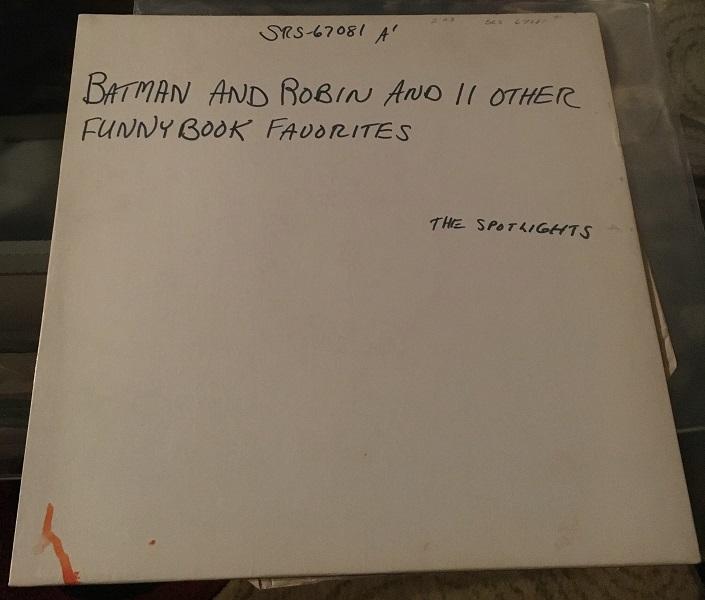 SRS-67081 A'
BATMAN AND ROBIN AND 11 OTHER
FUNNYBOOK FAVORITES
THE SPOTLIGHTS